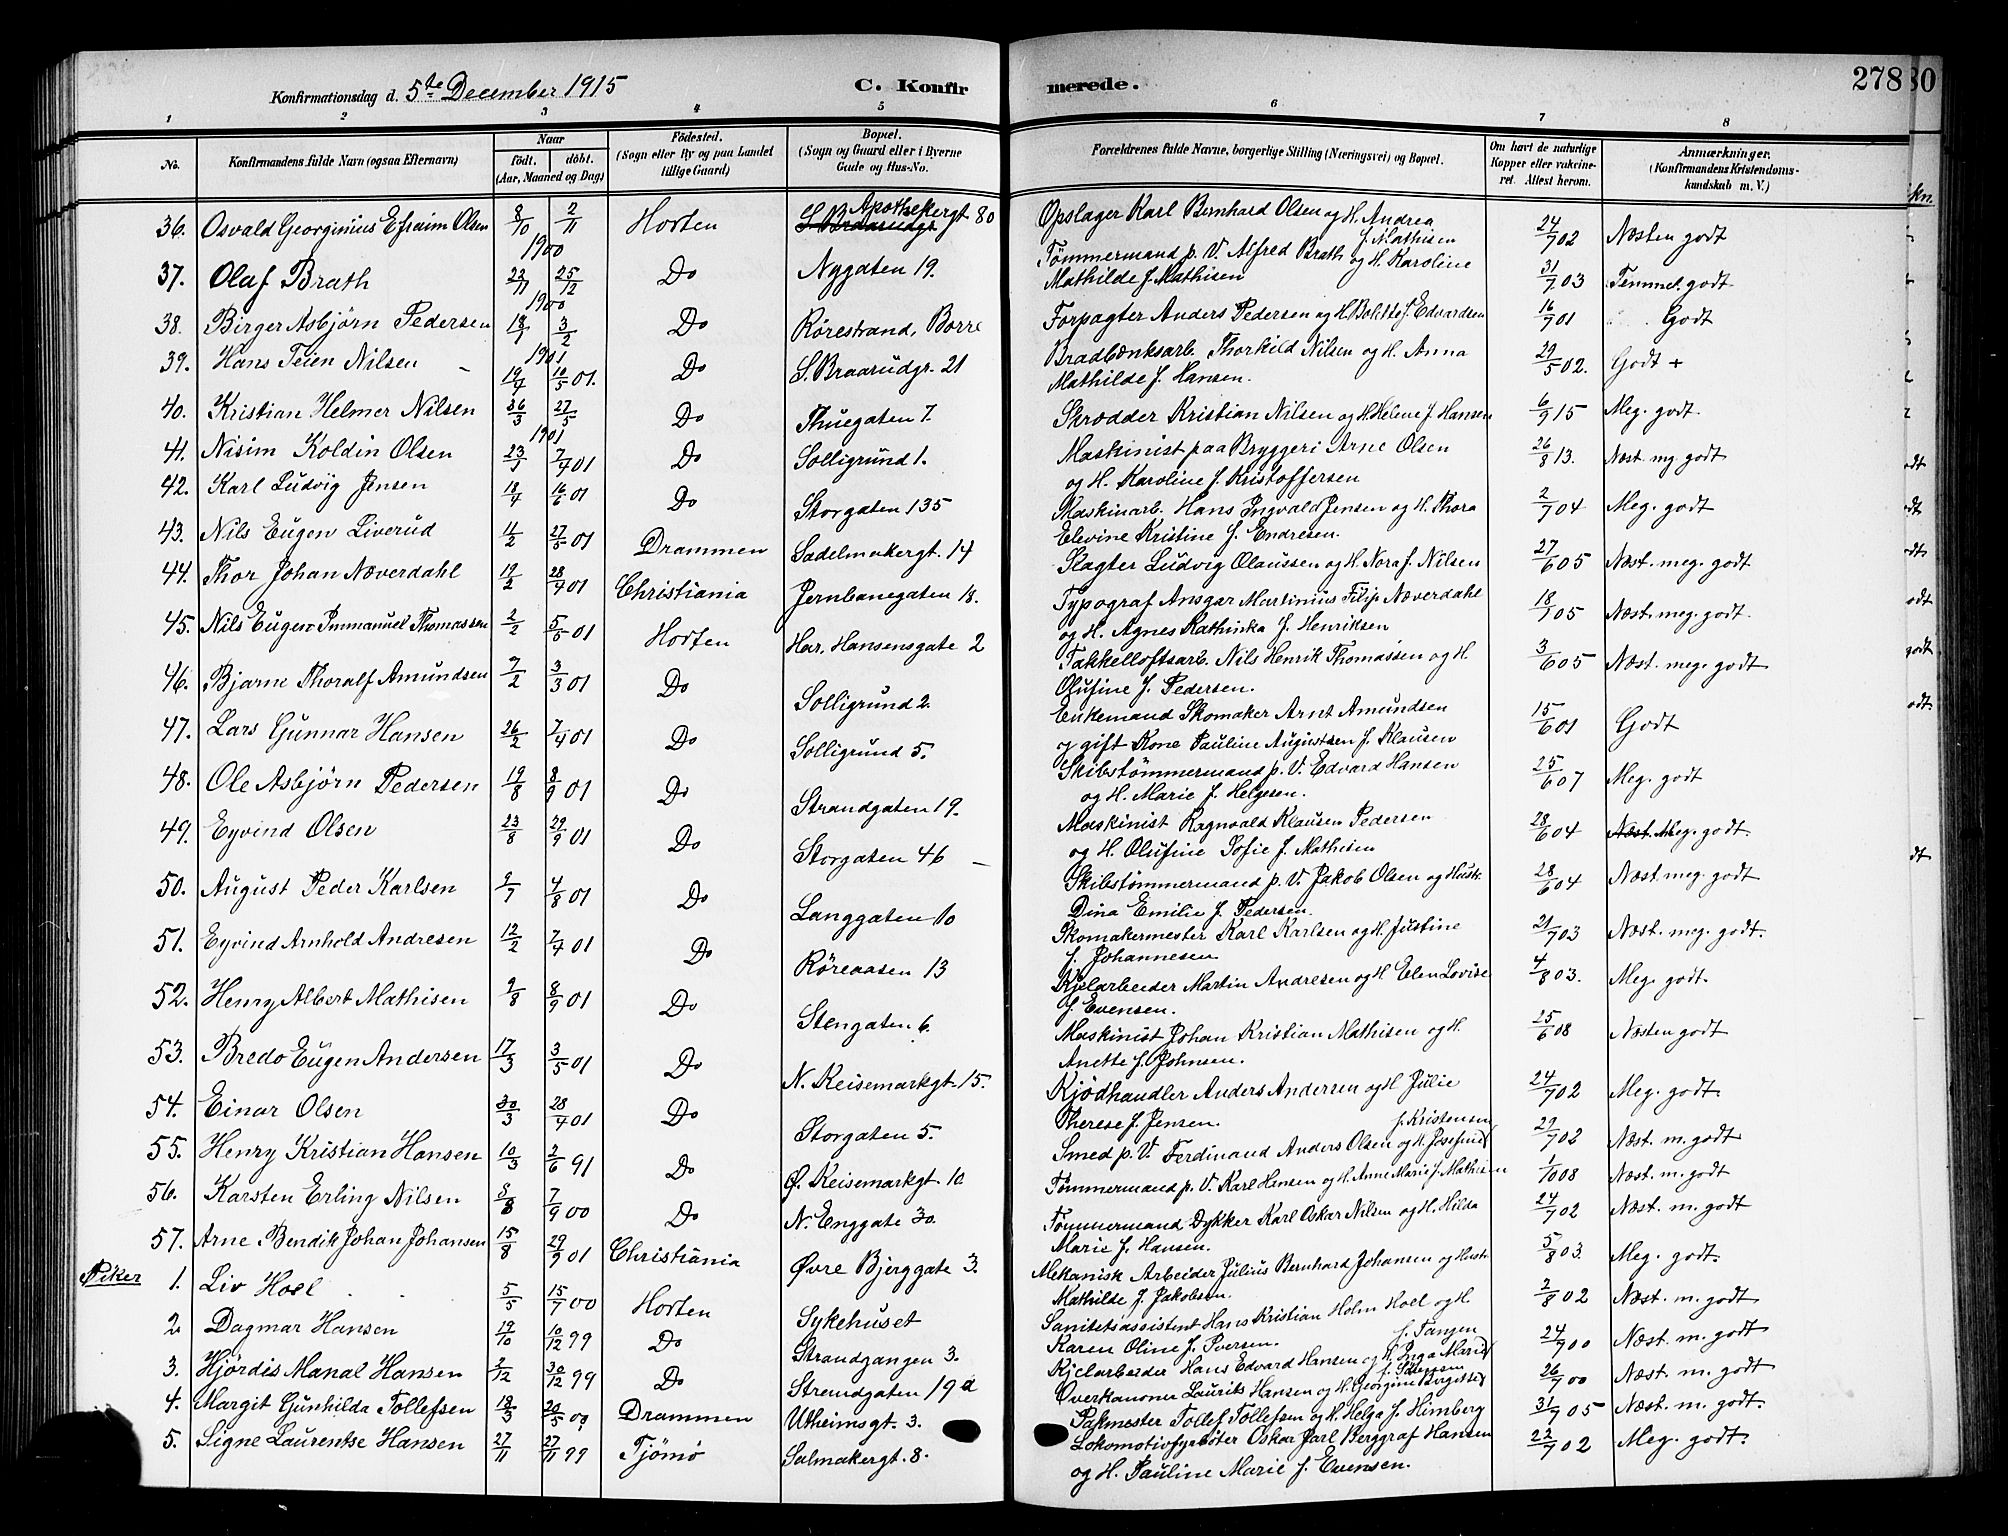 Konfirmationsdag d. 5te December 1915 C. Konfirmerede. 278 80
1 2 3 4 5 6 7 8
No. Konfirmandens fulde Navn (ogsaa Efternavn) Naar født. døbt. (Aar, Maaned og Dag) Fødested. (Sogn eller By og paa Landet tillige Gaard) Bopæl. (Sogn og Gaard eller i Byerne Gade og Hus-No. Forældrenes fulde Navne, borgerlige Stilling (Næringsvei) og Bopæl. Om havt de naturlige Kopper eller vakcineret. Attest herom. Anmærkninger. (Konfirmandens Kristendomskundskab m. V.)
36. Osvald Georginius Efraim Olsen 8/10 2/11 1900 Horten S. Braarudgt Apothekergt 80 Opslager Karl Bernhard Olsen og H. Andrea f. Mathisen 24/7 02 Næsten godt
37. Olaf Brath 22/11 25/12 1900 Do Nygaten 19. Tømmermand p. V. Alfred Brath og H. Karoline Mathilde f. Mathisen 31/7 03 Temmel. godt
38. Birger Asbjørn Pedersen 18/1 3/2 1901 Do Rørestrand, Borre Forpagter Anders Pedersen og H Bolette f. Edvardsen 16/7 01 Godt
39. Hans Teien Nilsen 19/4 10/5 01. Do S. Braarudgr. 21 Bradbænksarb. Thorkild Nilsen og H. Anna Mathilde f. Hansen. 29/5 02. Godt +
40. Kristian Helmer Nilsen 26/3 27/5 1901 Do Thuegaten 7. Skrædder Kristian Nilsen og H Helene f Hansen 6/9 15 Meg. godt
41. Nisim Koldin Olsen 23/1 7/4 01 Do Solligrund 1. Maskinist paa Bryggeri Arne Olsen og H. Karoline f. Kristoffersen 26/8 13. Næst my. godt
42. Karl Ludvig Jensen 18/4 16/6 01 Do Storgaten 135 Maskinarb. Hans Ingvald Jensen og H. Thora Elevine Kristine f. Endresen. 2/7 04 Meg. godt
43. Nils Eugen Liverud 14/2 27/5 01 Drammen Sadelmakergt. 14 Slagter Ludvig Olaussen og H. Nora f. Nilsen 27/6 05 Næst. meg. godt
44. Thor Johan Næverdahl 19/2 28/4 01 Christiania Jernbanegaten 18. Typograf Ansgar Martinius Filip Næverdahl og H. Agnes Kathinka f. Henriksen 18/7 05 Næst. meg. godt.
45. Nils Eugen Immanuel Thomassen 2/2 5/5 01 Horten Har. Hansensgate 2 Takkelloftsarb. Nils Henrik Thomassen og H. Olufine f. Pedersen. 3/6 05 Næst. meg. godt
46. Bjarne Thoralf Amundsen 7/2 3/3 01 Do Solligrund 2. Enkemand Skomaker Arnt Amundsen og gift Kone Pauline Augustsen f. Klausen 15/6 01 Godt
47. Lars Gunnar Hansen 26/2 7/4 01 Do Solligrund 5. Skibstømmermand p. V. Edvard Hansen og H. Marie f. Helgesen. 25/6 07 Meg. godt
48. Ole Asbjørn Pedersen 19/8 8/9 01 Do Strandgaten 19. Maskinist Ragnvald Klausen Pedersen og H. Olufine Sofie f. Mathisen 28/6 04 Næst. Meg. godt.
49. Eyvind Olsen 23/8 29/9 01 Do Storgaten 46 Skibstømmermand p. V. Jakob Olsen og Hustr. Dina Emilie f. Pedersen. 28/6 04 Næst. meg. godt
50. August Peder Karlsen 9/7 4/8 01 Do Langgaten 10 Skomakermester Karl Karlsen og H. Justine f. Johannesen 21/7 03 Næst. meg. godt.
51. Eyvind Arnhold Andresen 12/2 7/4 01 Do Røreaasen 13 Kjelarbeider Martin Andresen og H Elen Lovise f. Evensen. 4/8 03. Meg. godt.
52. Henry Albert Mathisen 9/8 8/9 01 Do Stengaten 6. Maskinist Johan Kristian Mathisen og H. Anette f. Johnsen. 25/6 08 Næsten godt
53. Bredo Eugen Andersen 17/3 3/5 01 Do N. Keisemarkgt. 15. Kjødhandler Anders Andersen og H. Julie Therese f. Jensen. 24/7 02 Meg. godt.
54. Einar Olsen 30/3 28/4 01 Do Storgaten 5. Smed p. V. Ferdinand Anders Olsen og H. Josefine f. Kristensen 29/7 02 Næst. m. godt
55. Henry Kristian Hansen 10/3 2/6 91 Do Ø. Keisemarkgt. 10 Tømmermand p. V. Karl Hansen og H. Anne Marie f. Mathisen 1/10 08 Næst. m. godt
56. Karsten Erling Nilsen 3/8 7/9 00 Do N. Enggate 30. Tømmermand Dykker Karl Oskar Nilsen og H. Hilda Marie f. Hansen. 24/7 02 Næst. m. godt
57. Arne Bendik Johan Johansen 15/8 29/9 01 Christiania Øvre Bjerggate 3. Mekanisk Arbeider Julius Bernhard Johansen og Hustr. Mathilde f. Jakobsen. 5/8 03. Meg. godt.
Piker 1. Liv Hoel 5/5 15/7 00 Horten Sykehuset Sanitetsassistent Hans Kristian Holm Hoel og H. Karen Oline f. Iversen. 2/8 02 Næst. m. godt
2. Dagmar Hansen 19/10 10/12 99 Do Strandgangen 3. Kjelarbeider Hans Edvard Hansen og H. Inga Marie f. Tangen 24/7 00 Næst. m. godt
3. Hjørdis Manal Hansen 2/12 30/12 99 Do Strandgaten 19a Overkanoner Laurits Hansen og H. Georgine Birgitte 26/7 00 Næst. m. godt
4. Margit Gunhilda Tollefsen 18/3 20/5 00 Drammen Utheimsgt. 3. Pakmester Tollef Tollefsen og H. Helga f. Himberg 31/7 05 Næst. m. godt.
5. Signe Laurentse Hansen 27/11 27/11 99 Tjømø Salmakergt. 8. Lokomotivfyrbøter Oskar Jarl Berggraf Hansen og H. Pauline Marie f. Evensen. 22/7 02 Meg. godt.